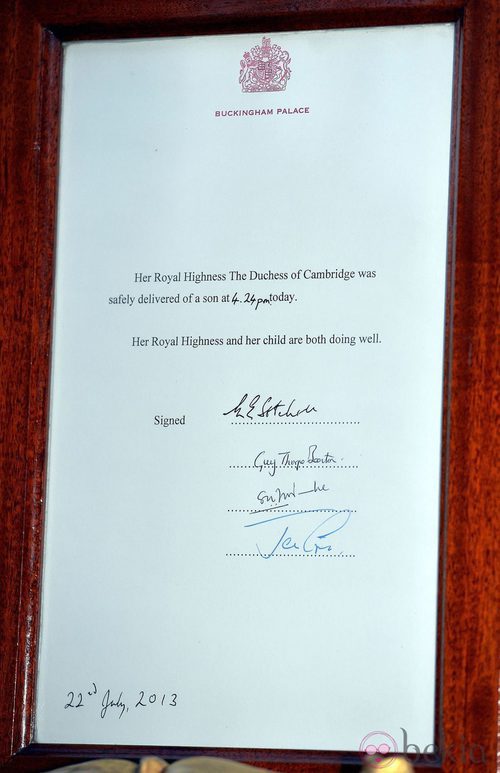 BUCKINGHAM PALACE
Her Royal Highness The Duchess of Cambridge was
safely delivered of a son at 4.24pm today.
Her Royal Highness and her child are both doing well.
Signed
Guy Thorpe-Beeston
22nd July, 2013
bekia